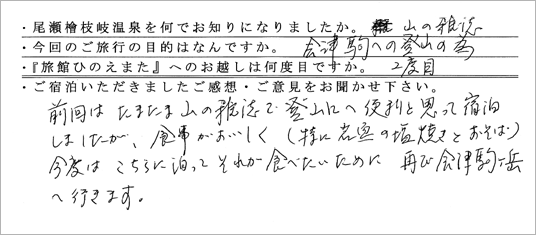 ・尾瀬檜枝岐温泉を何でお知りになりましたか。 山の雑誌
・今回のご旅行の目的はなんですか。 会津駒への登山の為
・『旅館ひのえまた』へのお越しは何度目ですか。 2度目
・ご宿泊いただきましたご感想・ご意見をお聞かせ下さい。
前回はたまたま山の雑誌で登山にへ便利と思って宿泊
しましたが、食事がおいしく(特に岩魚の塩焼きとおそば)
今度はこちらに泊ってそれが食べたいために 再び会津駒ヶ岳
へ行きます。